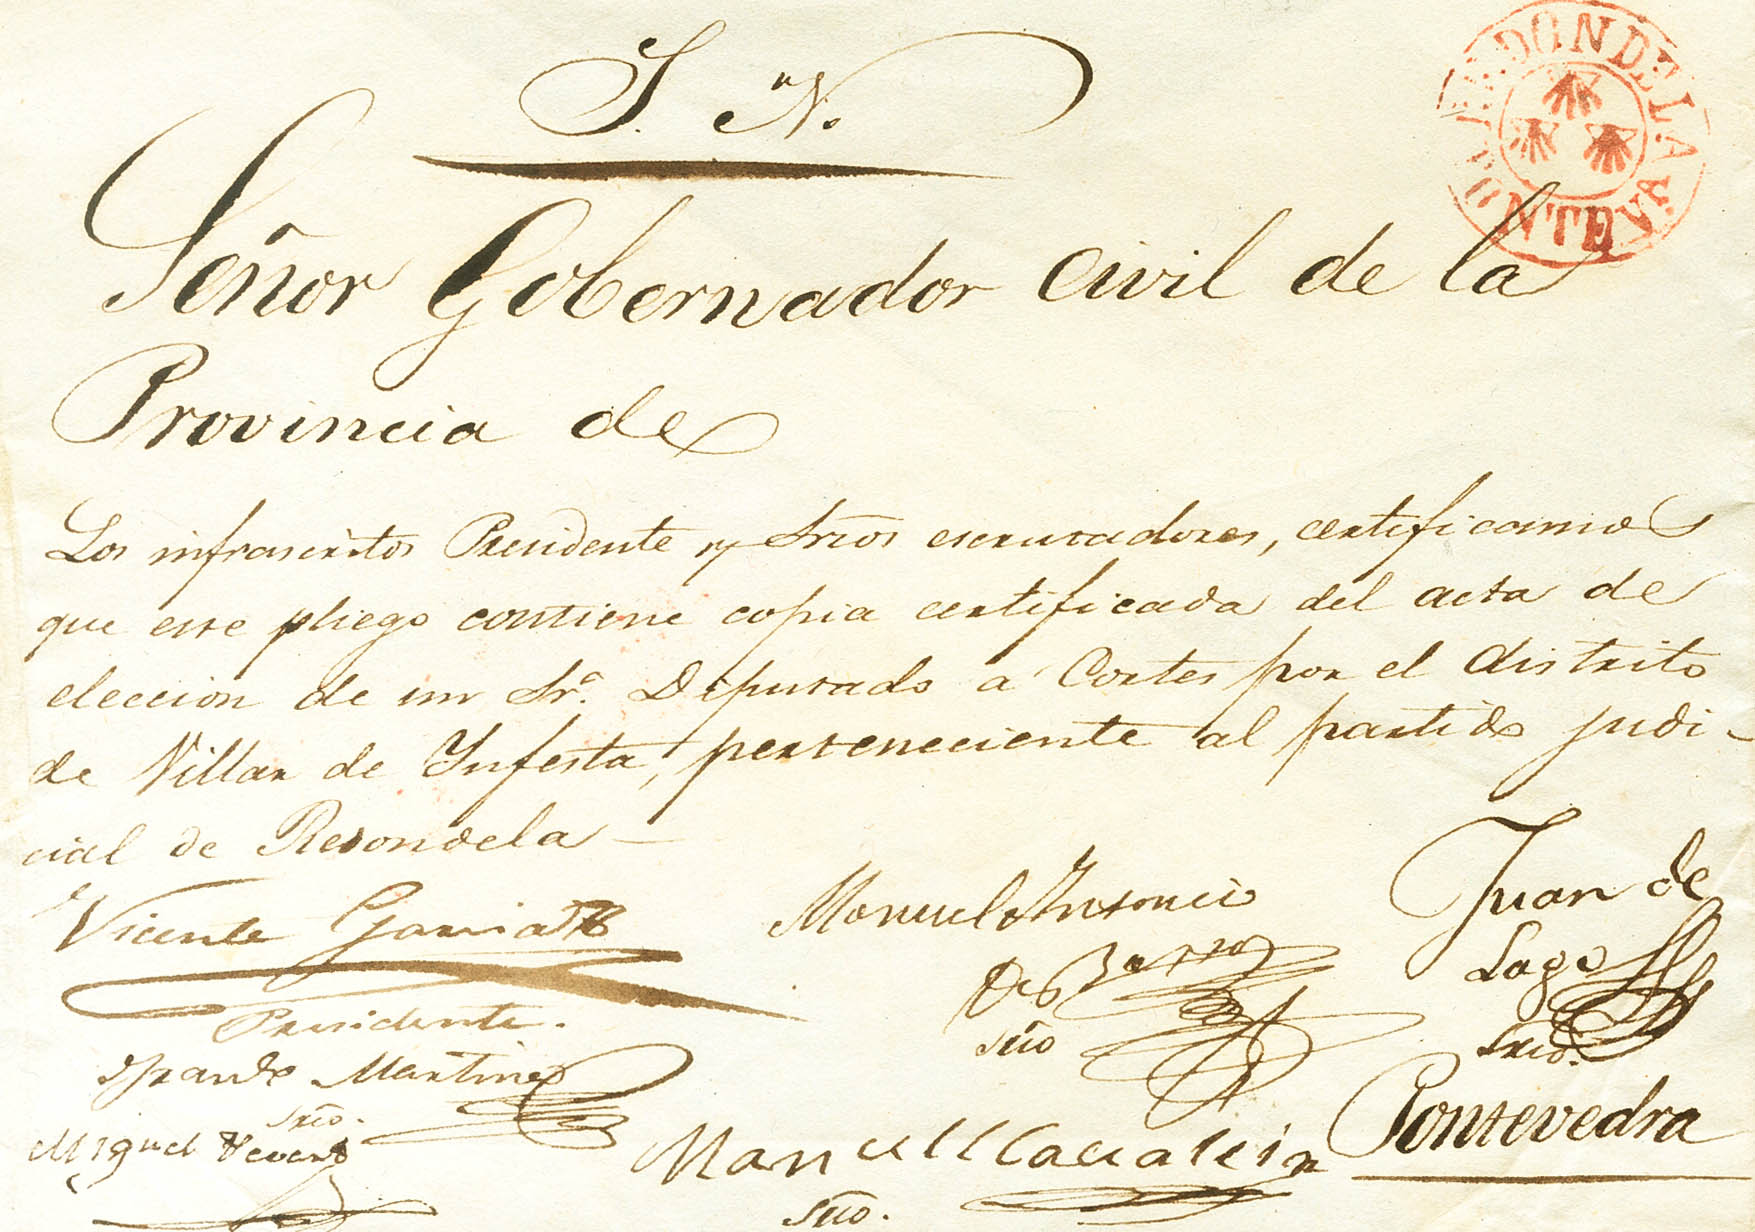 S. N.
REDONDELA
PONTEVA
Señor Gobernador Civil de la
Provincia de
Los infrascritos Presidente y Srios escrutadores, certificamos
que este pliego contiene copia certificada del acta de
eleccion de un Sr. Deputado a Cortes por el distrito
de Villar de Ynfesta, perteneciente al partido judi-
cial de Redondela
Vicente Garcia
Presidente.
Martinez
Srio.
Miguel
Manuel Antonio
De
Srio
Juan de
Lago
Srio.
Manuel
Srio.
Pontevedra